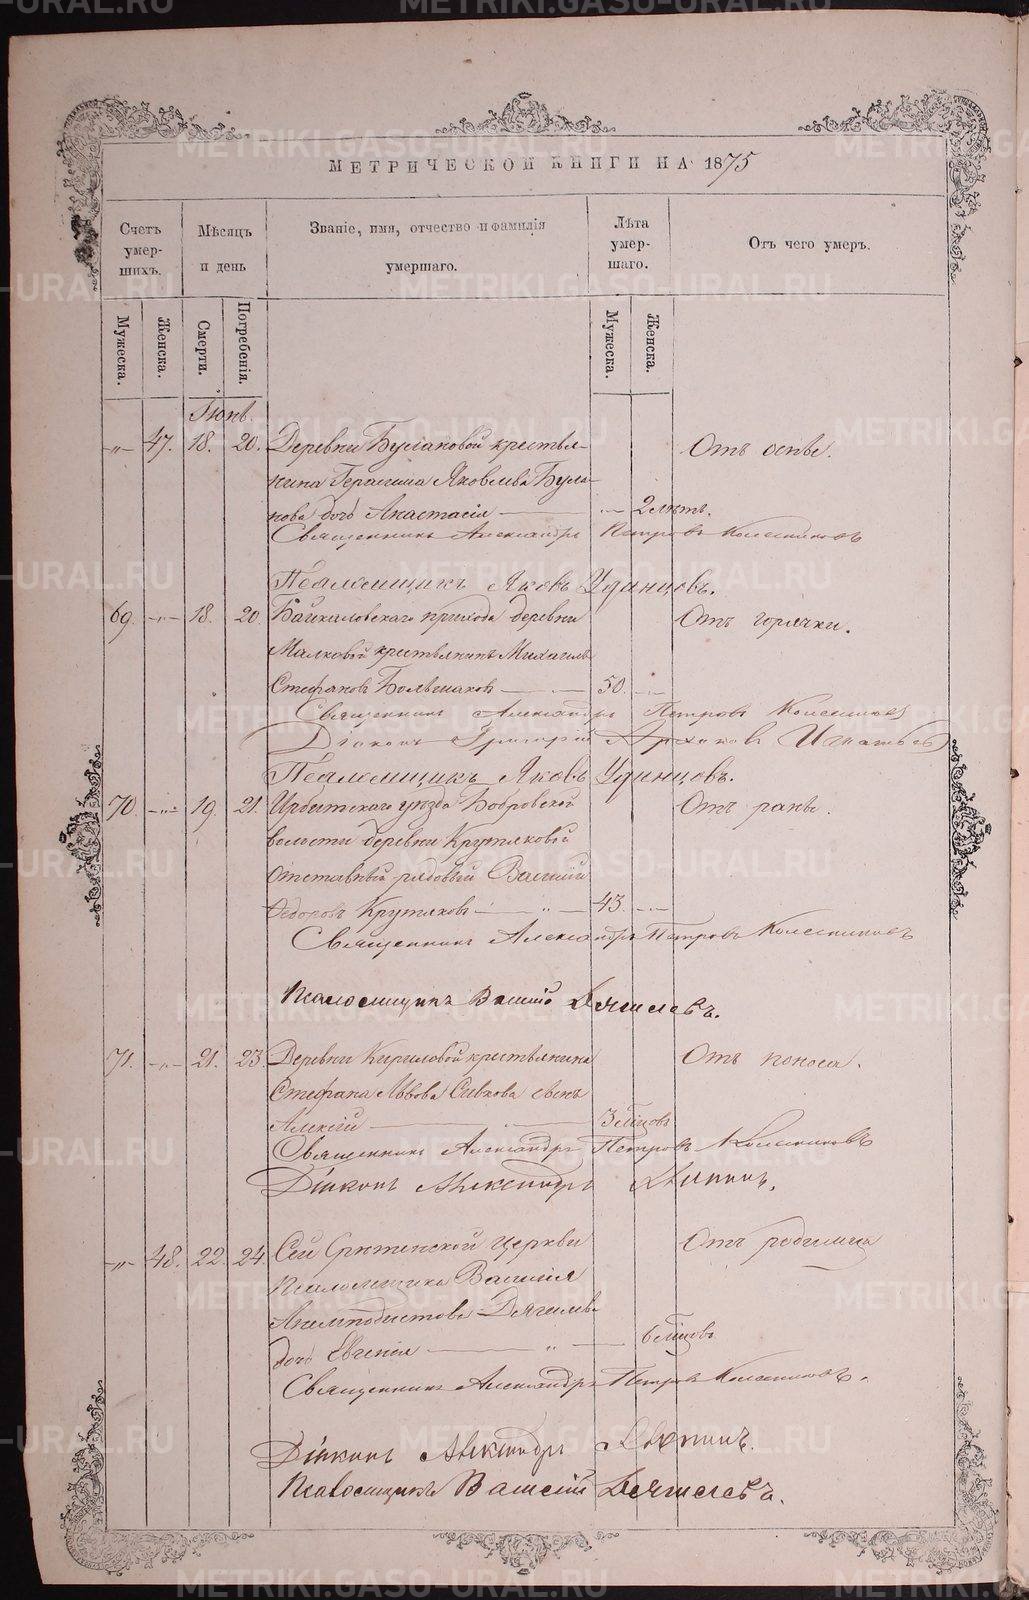 METRIKI.GASO-URAL.RU
МЕТРИЧЕСКОЙ КНИГИ НА 1875
Счетъ умер-шихъ.
Мѣсяцъ и день
Званіе, имя, отчество и фамилія умершаго.
Лѣта умер-шаго.
Отъ чего умеръ.
Мужеска.
Женска.
Смерти.
Погребенія.
Мужеска.
Женска.
Іюнь.
-„- 47. 18. 20. Деревни Булаковой крестья- Отъ оспы.
нина Герасима Яковлева Була-
кова дочь Анастасія -„- 2 лѣтъ.
Священникъ Александръ Петровъ Колесниковъ
Псаломщикъ Яковъ Удинцовъ.
69. -„- 18. 20. Байкаловскаго прихода деревни Отъ горячки.
Малковой крестьянинъ Михаилъ
Стефановъ Большаковъ 50. -„-
Священникъ Александръ Петровъ Колесниковъ
Діаконъ Григорій Игнатьевъ
Псаломщикъ Яковъ Удинцовъ.
70. -„- 19. 21. Ирбитскаго уѣзда Бобровской Отъ раны.
волости деревни Крутиковой
отставный рядовый Василій
Ѳедоровъ Крутиковъ -„- 43. -„-
Священникъ Александръ Петровъ Колесниковъ
Псаломщикъ Василій Дягилевъ.
71. -„- 21. 23. Деревни Кириловой крестьянина Отъ поноса.
Стефана Львова Сивкова сынъ
Алексій 3 мѣсцовъ
Священникъ Александръ Петровъ Колесниковъ
Діаконъ Александръ
-„- 48. 22. 24. Сей Срѣтенской Церкви Отъ родимца
Псаломщика Василія
Анемподистова Дягилева
дочь Евгенія -„- 6 мѣсцовъ
Священникъ Александръ Петровъ Колесниковъ.
Діаконъ Александръ
Псаломщикъ Василій Дягилевъ.